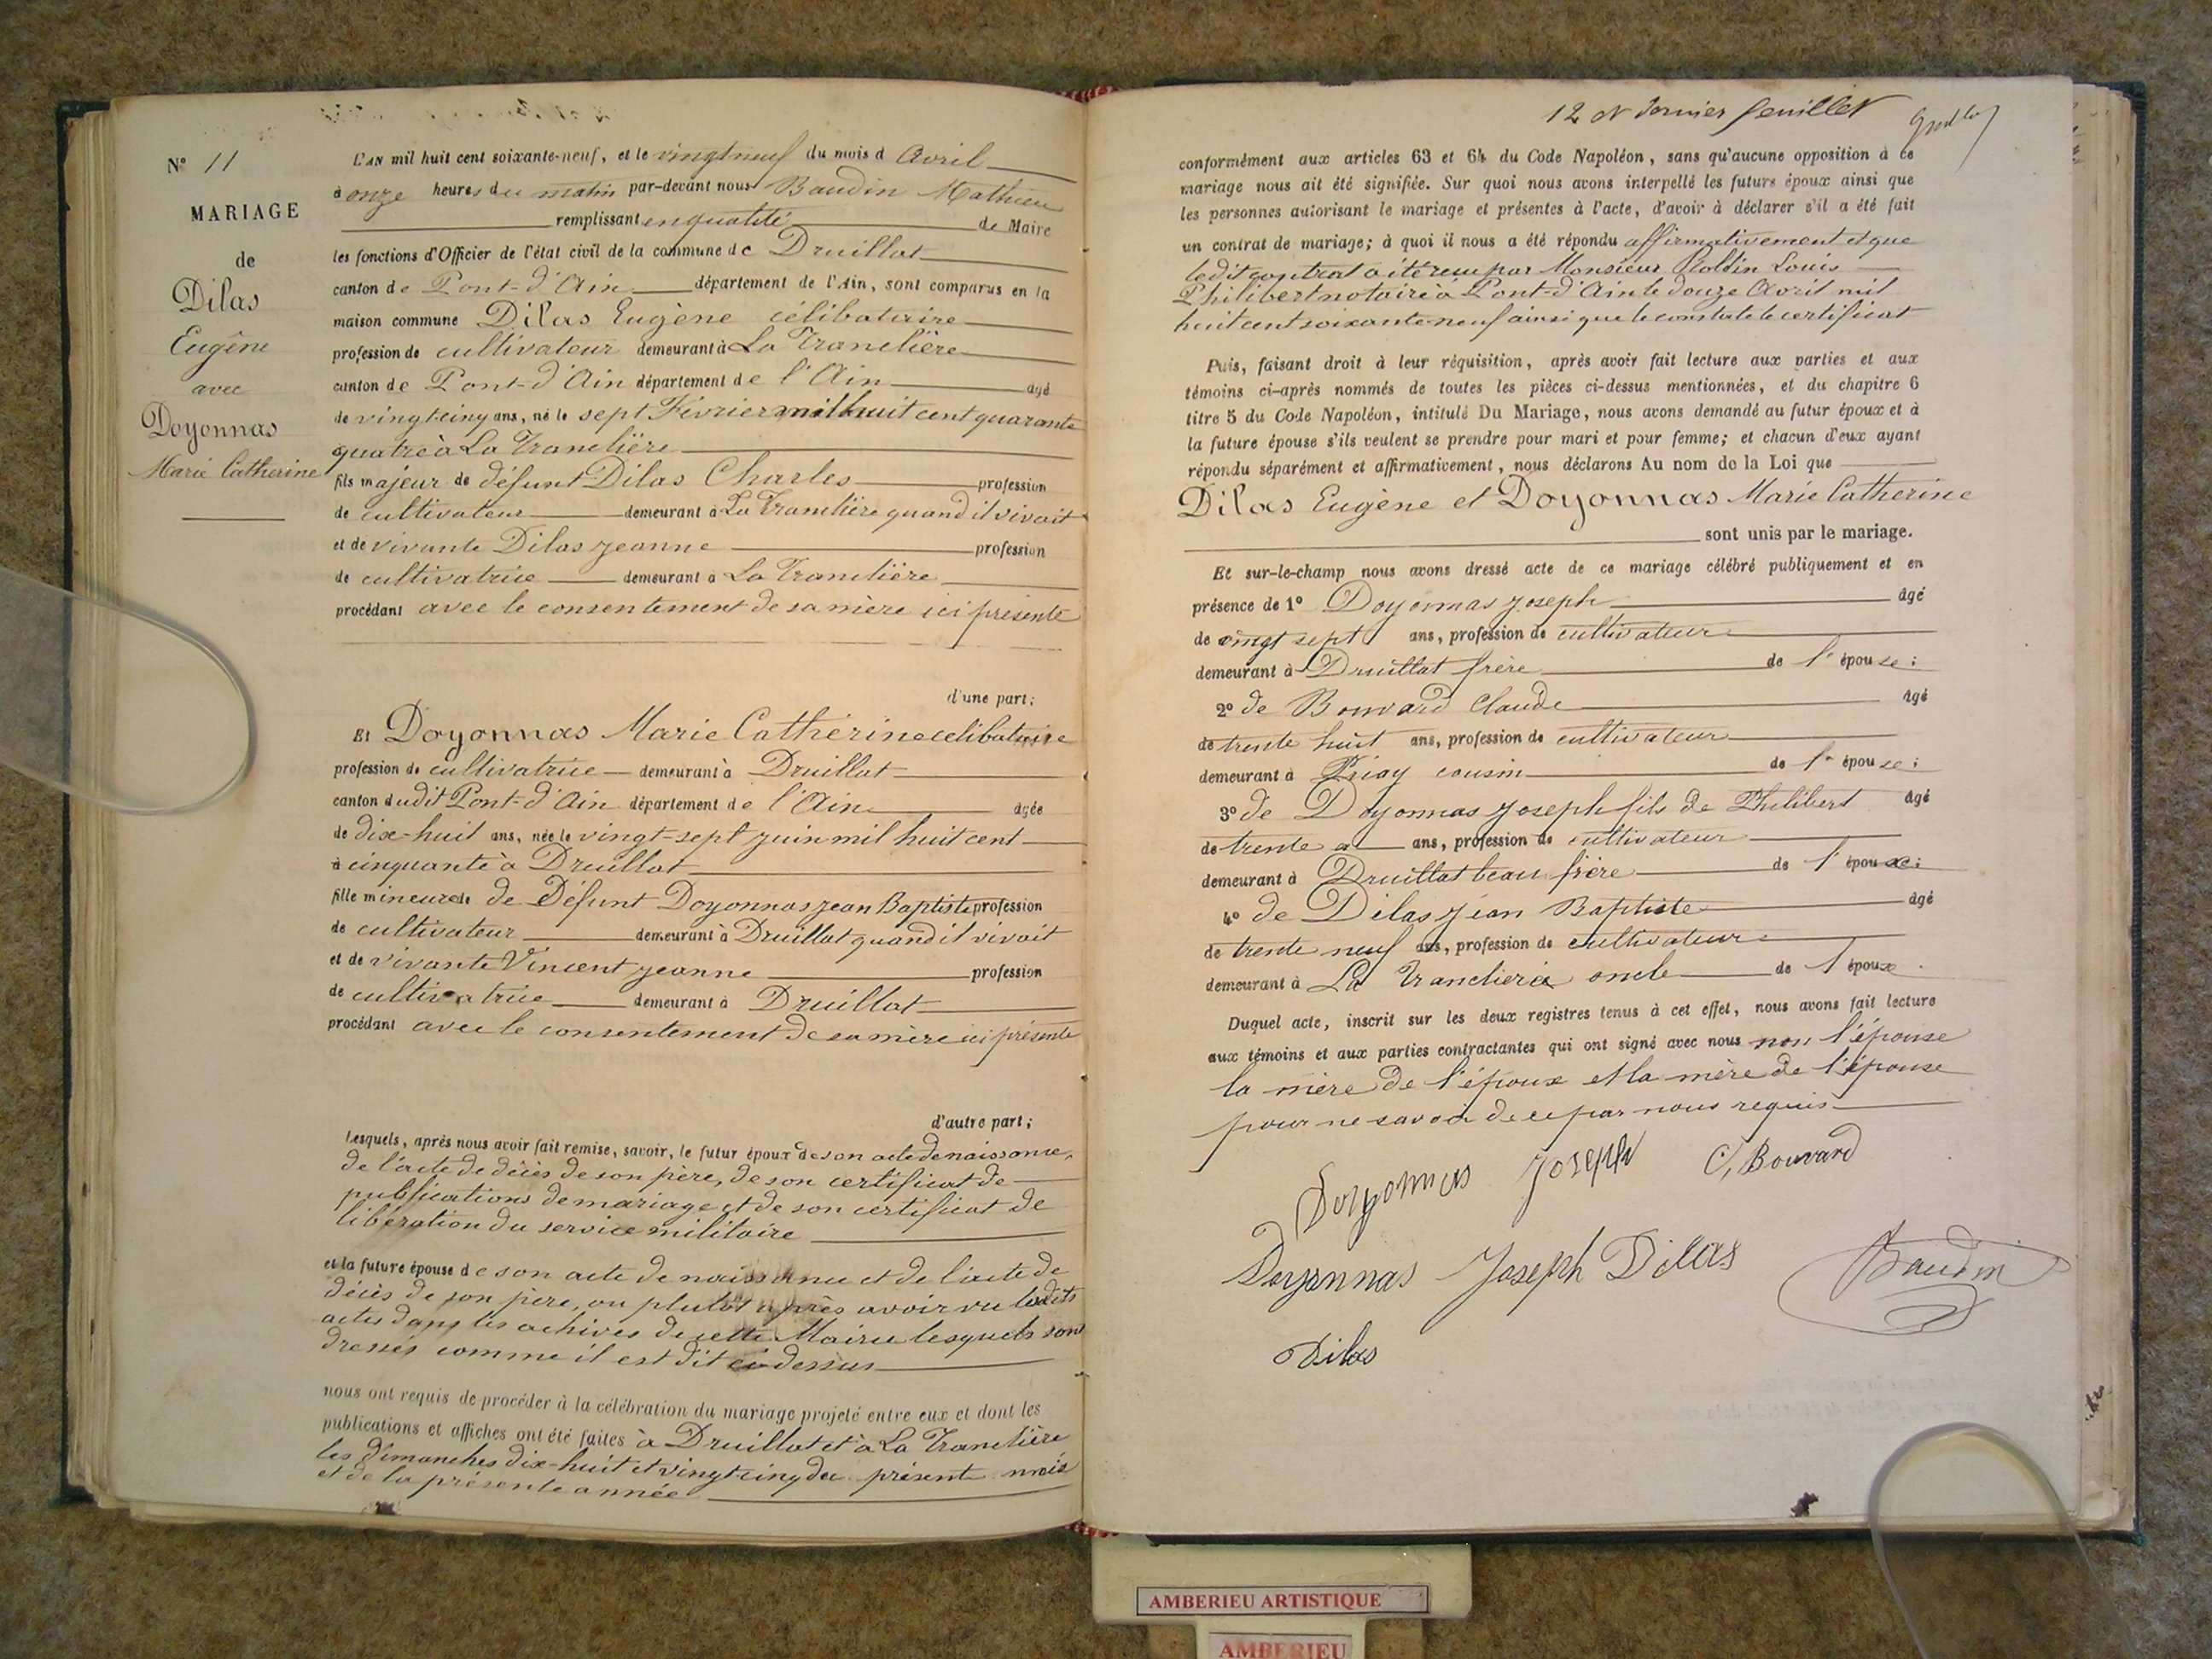 N° 11
MARIAGE
de
Dilas
Eugène
avec
Doyonnas
Marie Catherine
L'AN mil huit cent soixante-neuf, et le vingt neuf du mois d Avril
à onze heures du matin par-devant nous Baudin Mathieu
remplissant en qualité de Maire
les fonctions d'Officier de l'état civil de la commune de Druillat
canton de Pont-d'Ain département de l'Ain, sont comparus en la
maison commune Dilas Eugène célibataire
profession de cultivateur demeurant à La Tranclière
canton de Pont-d'Ain département de l'Ain âgé
de vingt-cinq ans, né le sept Février mil huit cent quarante
quatre à La Tranclière
fils majeur de défunt Dilas Charles profession
de cultivateur demeurant à La Tranclière quand il vivait
et de vivante Dilas Jeanne profession
de cultivatrice demeurant à La Tranclière
procédant avec le consentement de sa mère ici présente
d'une part;
Et Doyonnas Marie Catherine celibataire
profession de cultivatrice demeurant à Druillat
canton dudit Pont-d'Ain département de l'Ain âgée
de dix-huit ans, née le vingt-sept Juin mil huit cent
à cinquante à Druillat
fille mineure de de Défunt Doyonnas Jean Baptiste profession
de cultivateur demeurant à Druillat quand il vivait
et de vivante Vincent Jeanne profession
de cultivatrice demeurant à Druillat
procédant avec le consentement de sa mère ici présente
d'autre part;
Lesquels, après nous avoir fait remise, savoir, le futur époux de son acte de naissance,
de l'acte de décès de son père, de son certificat de
publications de mariage et de son certificat de
libération du service militaire
et la future épouse de son acte de naissance et de l'acte de
décès de son père, ou plutôt après avoir vu lesdits
actes dans les achives de cette Mairie lesquels sont
dressés comme il est dit ci-dessus
nous ont requis de procéder à la célébration du mariage projeté entre eux et dont les
publications et affiches ont été faites à Druillat et à La Tranclière
les dimanches dix-huit et vingt-cinq du présent mois
et de la présente année
12 et dernier feuillet
conformément aux articles 63 et 64 du Code Napoléon, sans qu'aucune opposition à ce
mariage nous ait été signifiée. Sur quoi nous avons interpellé les futurs époux ainsi que
les personnes autorisant le mariage et présentes à l'acte, d'avoir à déclarer s'il a été fait
un contrat de mariage; à quoi il nous a été répondu affirmativement et que
ledit contrat a été reçu par Monsieur Louis
Philibert notaire à Pont-d'Ain le douze Avril mil
huit cent soixante-neuf ainsi que le constate le certificat
Puis, faisant droit à leur réquisition, après avoir fait lecture aux parties et aux
témoins ci-après nommés de toutes les pièces ci-dessus mentionnées, et du chapitre 6
titre 5 du Code Napoléon, intitulé Du Mariage, nous avons demandé au futur époux et à
la future épouse s'ils veulent se prendre pour mari et pour femme; et chacun d'eux ayant
répondu séparément et affirmativement, nous déclarons Au nom de la Loi que
Dilas Eugène et Doyonnas Marie Catherine
sont unis par le mariage.
Et sur-le-champ nous avons dressé acte de ce mariage célébré publiquement et en
présence de 1° Doyonnas Joseph âgé
de vingt sept ans, profession de cultivateur
demeurant à Druillat frère de l'épouse;
2° de Bouvard Claude âgé
de trente huit ans, profession de cultivateur
demeurant à Priay cousin de l'épouse;
3° de Doyonnas Joseph fils de Philibert âgé
de trente ans, profession de cultivateur
demeurant à Druillat beau frère de l'époux;
4° de Dilas Jean Baptiste âgé
de trente neuf ans, profession de cultivateur
demeurant à La Tranclière oncle de l'époux.
Duquel acte, inscrit sur les deux registres tenus à cet effet, nous avons fait lecture
aux témoins et aux parties contractantes qui ont signé avec nous non l'épouse
la mère de l'époux et la mère de l'épouse
pour ne savoir de ce par nous requis
Doyonnas Joseph C. Bouvard
Doyonnas Joseph Dilas Baudin
Dilas
AMBERIEU ARTISTIQUE
AMBERIEU